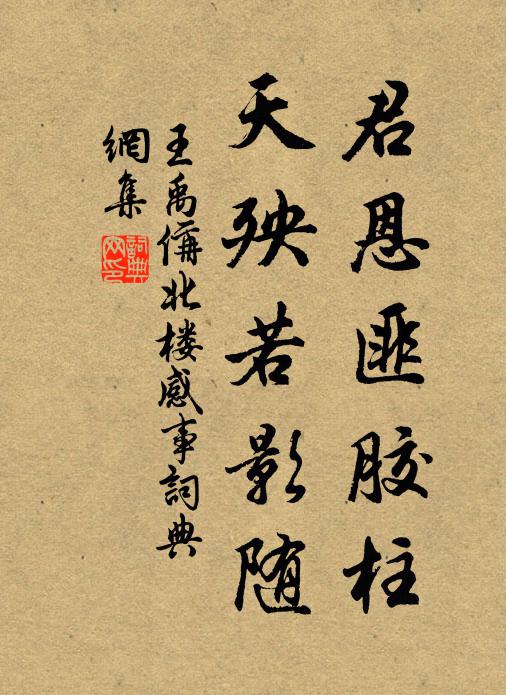 君恩匪膠柱
天殃若影随
王禹偁北楼感事詞典
網集
詞典網印